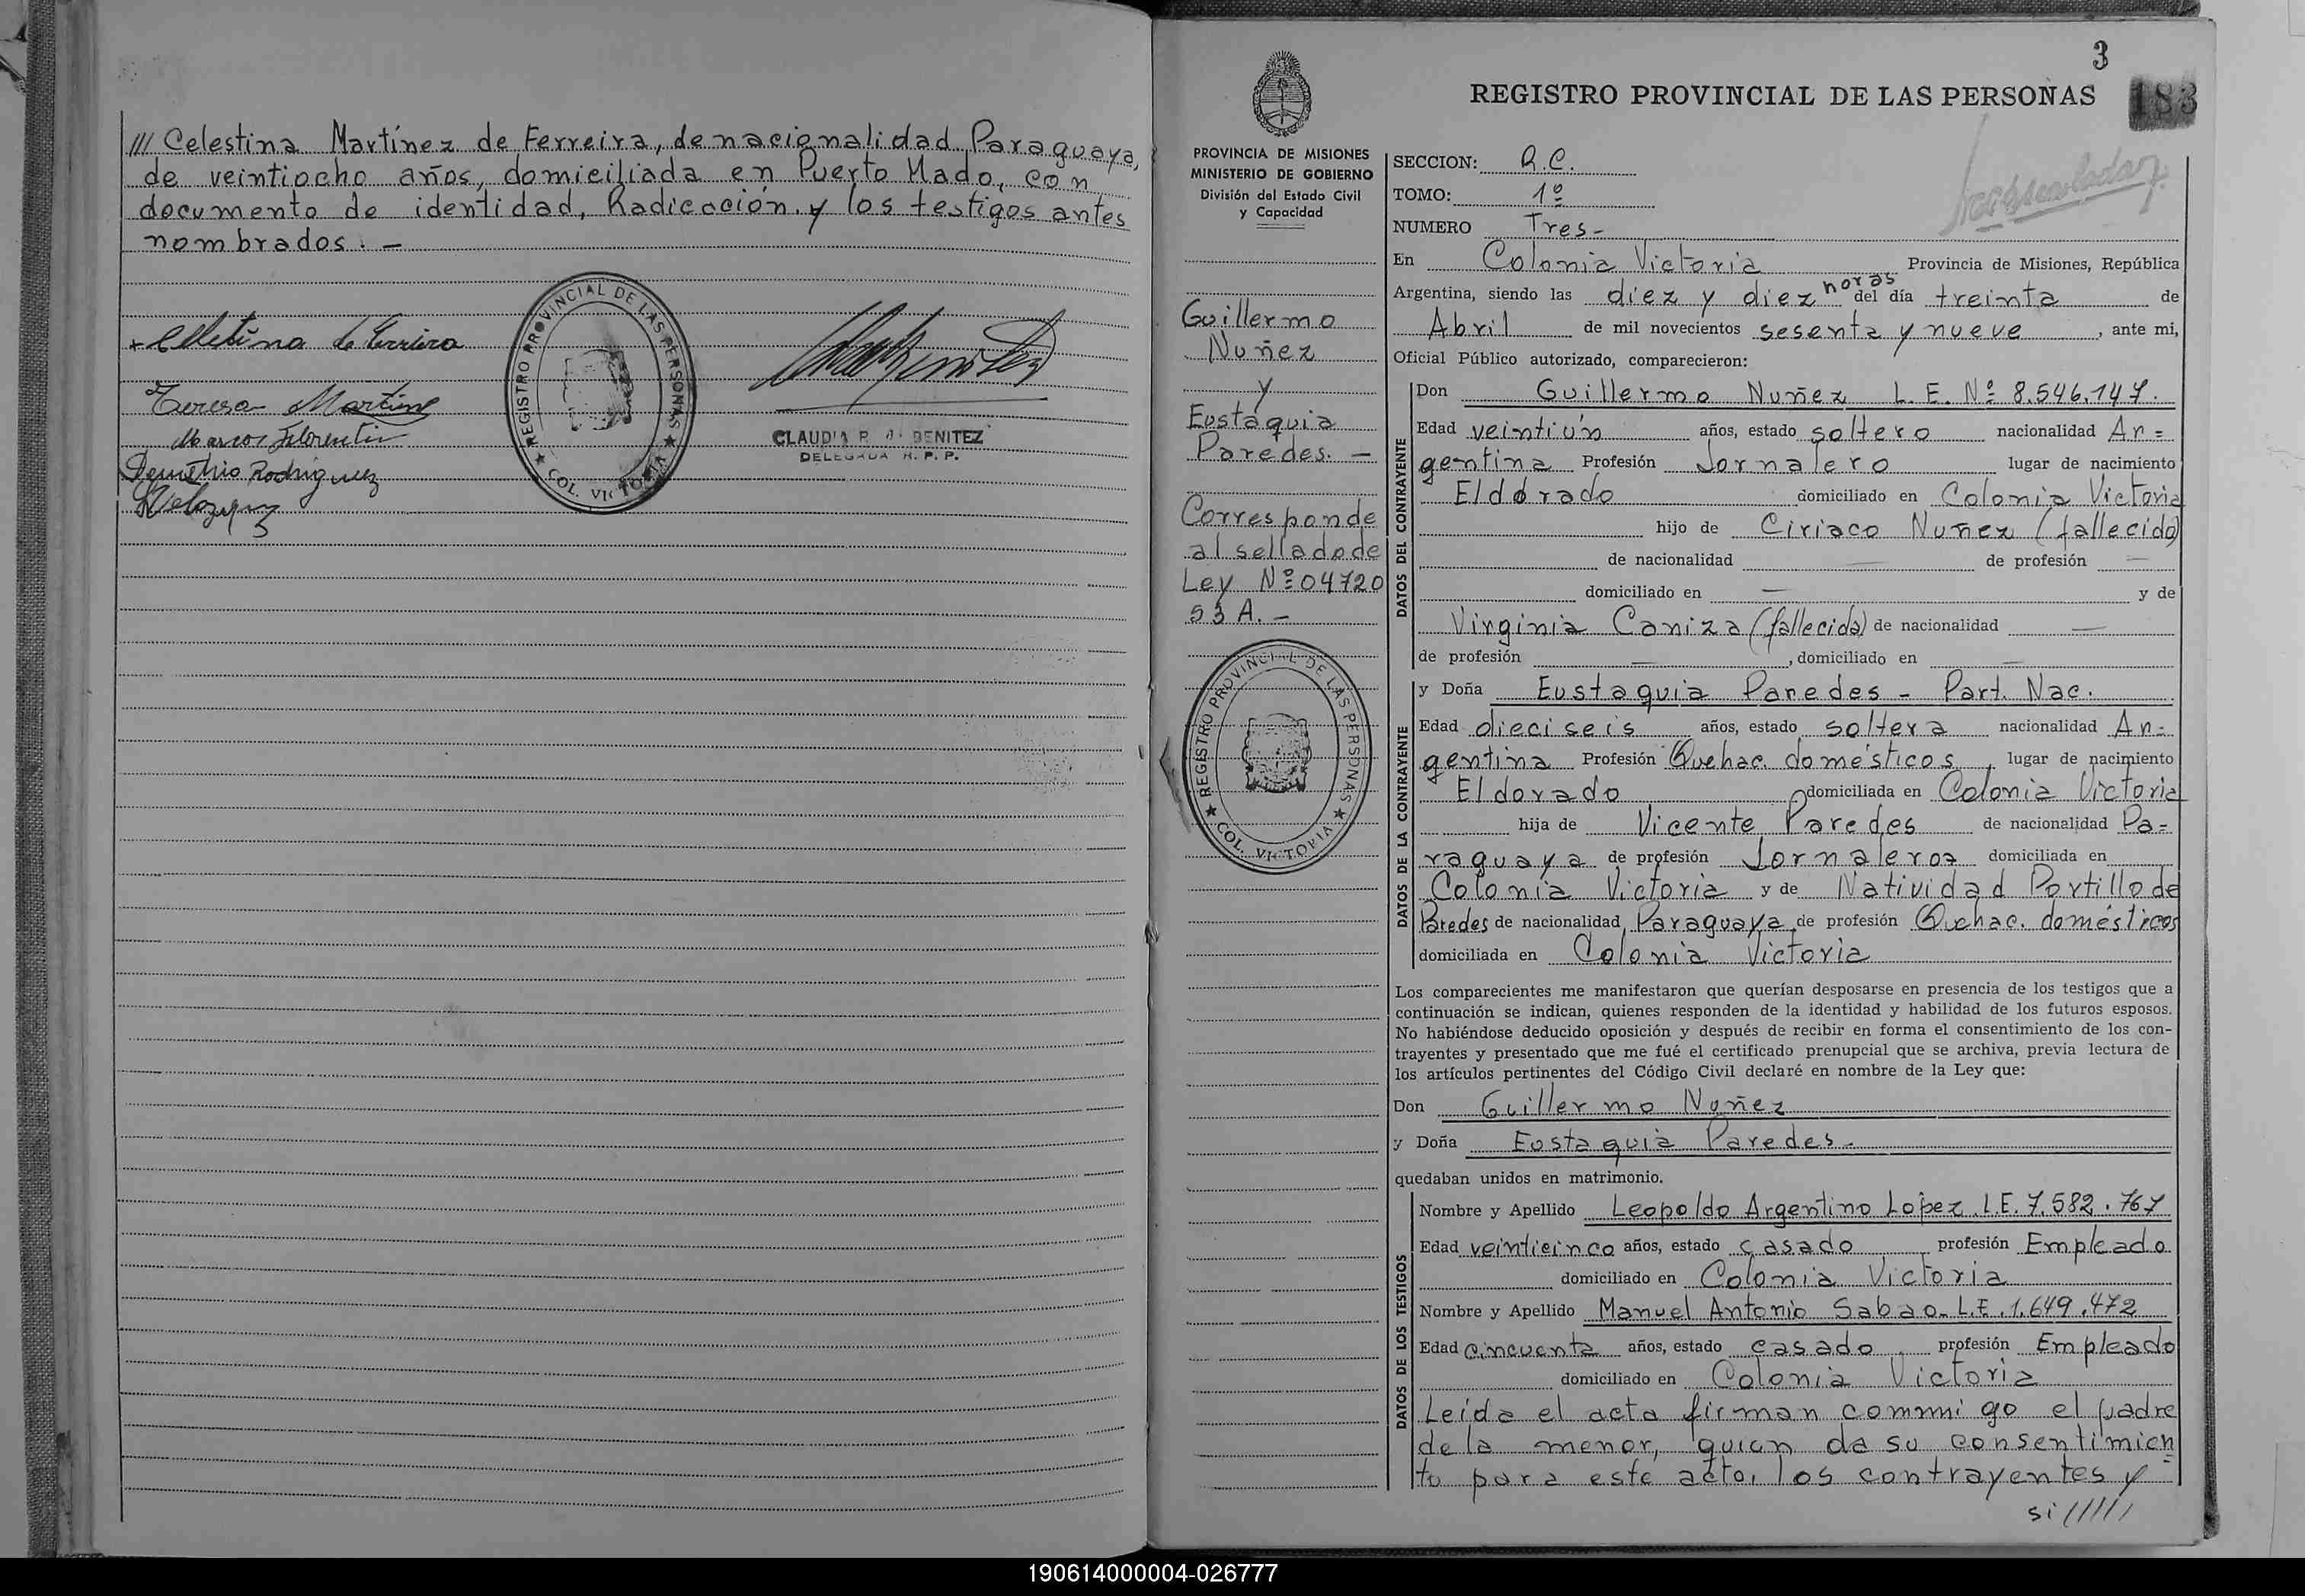 /// Celestina Martínez de Ferreira, de nacionalidad Paraguaya,
de veintiocho años, domiciliada en Puerto Mado, con
documento de identidad, Radicación. y los testigos antes
nombrados. —
Celetina de Ferreira
Teresa Martine
Marcos Florentin
Demetrio Rodriguez
Velozquez
REGISTRO PROVINCIAL DE LAS PERSONAS
COL. VICTORIA
CLAUDIA R. BENITEZ
DELEGADA R. P. P.
3
REGISTRO PROVINCIAL DE LAS PERSONAS
183
PROVINCIA DE MISIONES
MINISTERIO DE GOBIERNO
División del Estado Civil
y Capacidad
Guillermo
Nuñez
y
Eustaquia
Paredes. —
Corresponde
al sellado de
Ley Nº 04720
53 A. —
REGISTRO PROVINCIAL DE LAS PERSONAS
COL. VICTORIA
SECCION: R.C.
TOMO: 1º
NUMERO Tres-
En Colonia Victoria Provincia de Misiones, República
Argentina, siendo las diez y diez horas del día treinta de
Abril de mil novecientos sesenta y nueve, ante mi,
Oficial Público autorizado, comparecieron:
DATOS DEL CONTRAYENTE
Don Guillermo Nuñez L. E. Nº 8.546.147.
Edad veintiún años, estado soltero nacionalidad Ar=
gentina Profesión Jornalero lugar de nacimiento
Eldorado domiciliado en Colonia Victoria
hijo de Ciriaco Nuñez (fallecido)
de nacionalidad de profesión —
domiciliado en — y de
Virginia Caniza (fallecida) de nacionalidad —
de profesión —, domiciliado en —
DATOS DE LA CONTRAYENTE
y Doña Eustaquia Paredes - Part. Nac.
Edad dieciseis años, estado soltera nacionalidad Ar=
gentina Profesión Quehac. domésticos, lugar de nacimiento
Eldorado domiciliada en Colonia Victoria
hija de Vicente Paredes de nacionalidad Pa=
raguaya de profesión Jornaleroa domiciliada en
Colonia Victoria y de Natividad Portillo de
Paredes de nacionalidad Paraguaya de profesión Quehac. domésticos
domiciliada en Colonia Victoria
Los comparecientes me manifestaron que querían desposarse en presencia de los testigos que a
continuación se indican, quienes responden de la identidad y habilidad de los futuros esposos.
No habiéndose deducido oposición y después de recibir en forma el consentimiento de los con-
trayentes y presentado que me fué el certificado prenupcial que se archiva, previa lectura de
los artículos pertinentes del Código Civil declaré en nombre de la Ley que:
Don Guillermo Nuñez
y Doña Eustaquia Paredes-
quedaban unidos en matrimonio.
DATOS DE LOS TESTIGOS
Nombre y Apellido Leopoldo Argentino Lopez. L.E. 7.582.767
Edad veinticinco años, estado casado profesión Empleado
domiciliado en Colonia Victoria
Nombre y Apellido Manuel Antonio Sabao- L.E. 1.649.472
Edad cincuenta años, estado casado profesión Empleado
domiciliado en Colonia Victoria
Leida el acta firman conmigo el padre
de la menor, quien da su consentimien
to para este acto, los contrayentes y =
si /////
190614000004-026777